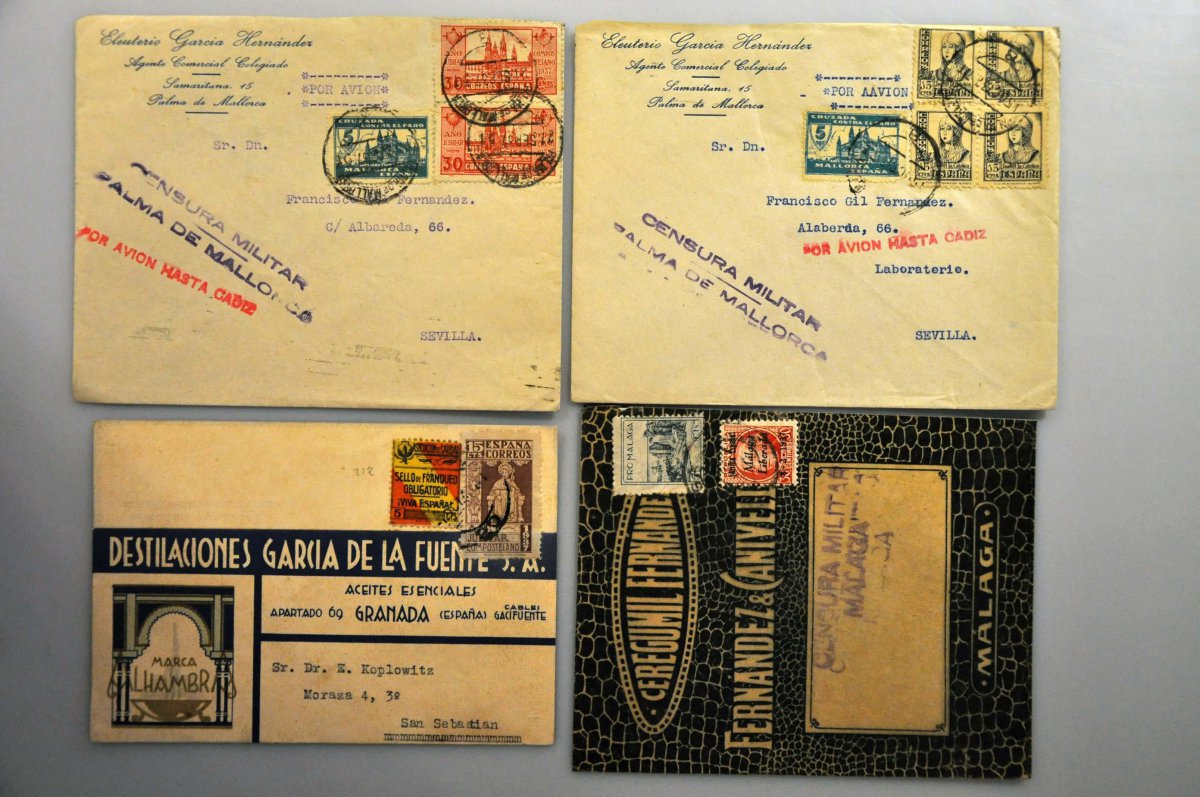 Eleuterio Garcia Hernández
Agente Comercial Colegiado
Samaritana, 15
Palma de Mallorca
*POR AVION*
AÑO
COMPOS
1937
30
CORREOS. ESPAÑA
AÑO
30
CRUZADA
CONTRA EL PARO
5
MALLORCA
ESPAÑA
Sr. Dn.
Francisco Fernandez.
C/ Albareda, 66.
CENSURA MILITAR
PALMA DE MALLORCA
POR AVION HASTA CADIZ
SEVILLA.
Eleuterio Garcia Hernández
Agente Comercial Colegiado
Samaritana, 15
Palma de Mallorca
*POR AAVION*
35
35
ESPAÑA
ESPAÑA
CRUZADA
CONTRA EL PARO
5
MALLORCA
ESPAÑA
Sr. Dn.
Francisco Gil Fernandez.
Alaberda, 66.
POR AVION HASTA CADIZ
Laboraterie.
CENSURA MILITAR
PALMA DE MALLORCA
SEVILLA.
318
SELLO DE FRANQUEO
OBLIGATORIO
¡VIVA ESPAÑA!
5
15 ESPAÑA
CTS CORREOS
COMPOSTELANO
DESTILACIONES GARCIA DE LA FUENTE S. A.
ACEITES ESENCIALES
APARTADO 69 GRANADA (ESPAÑA) CABLES GACIFUENTE
MARCA
ALHAMBRA
Sr. Dr. E. Koplowitz
Moraza 4, 3º
San Sebastian
PRO MALAGA
Málaga
Liberada
30
CEREGUMIL FERNANDEZ
FERNANDEZ & CANIVELL
CENSURA MILITAR
MALAGA
MÁLAGA